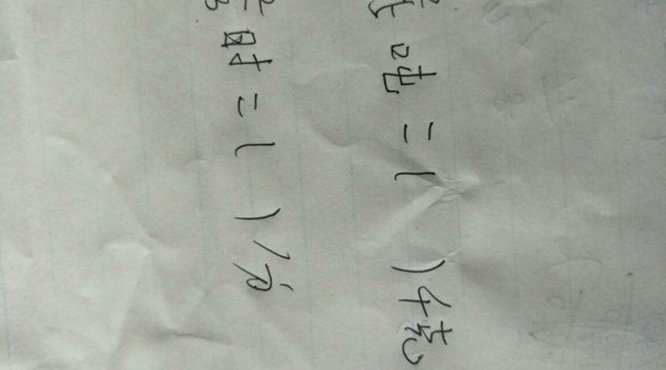 吨=( )千克
时=( )分